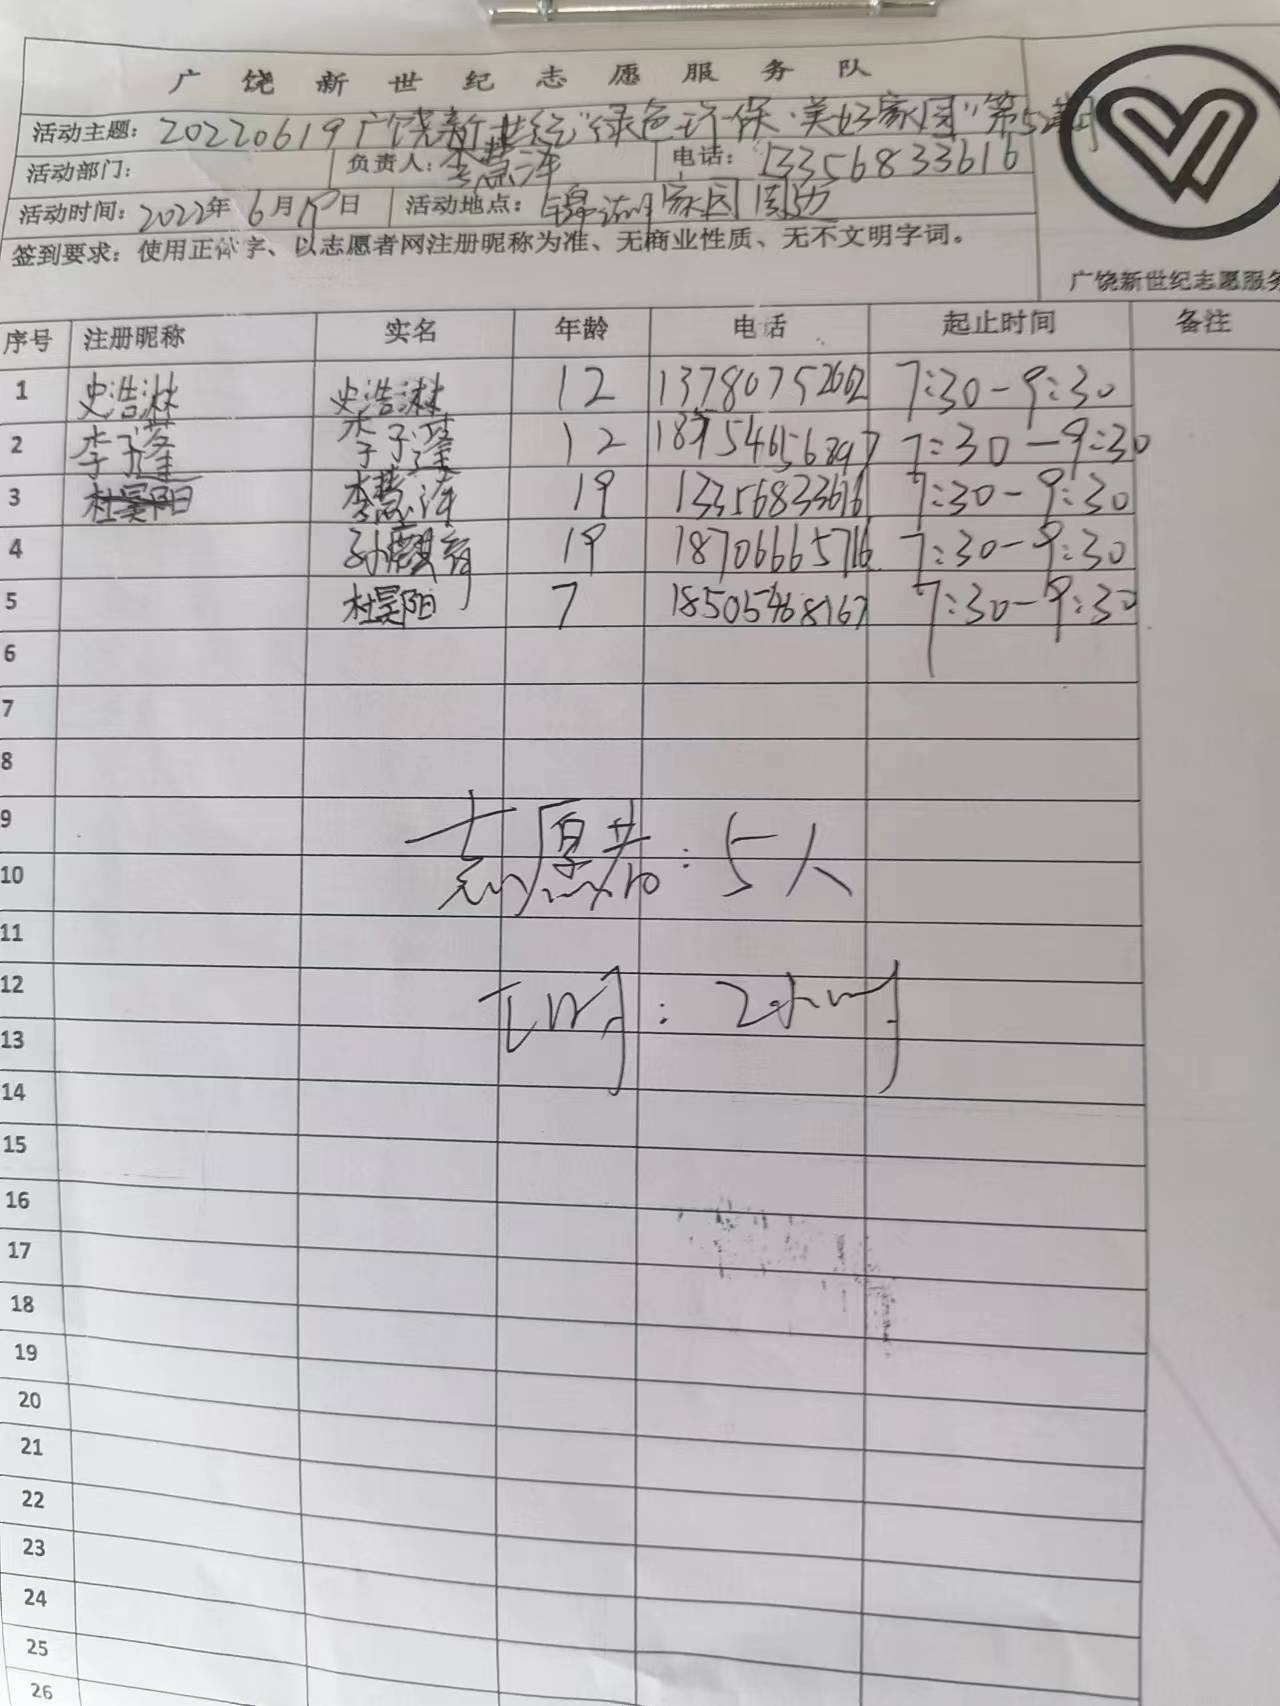 广饶新世纪志愿服务队
活动主题：20220619广饶新世纪"绿色环保·美好家园"第52期
活动部门： 负责人：李慧泽 电话：13356833616
活动时间：2022年6月19日 活动地点：锦湖家园周边
签到要求：使用正体字、以志愿者网注册昵称为准、无商业性质、无不文明字词。
广饶新世纪志愿服务
序号 注册昵称 实名 年龄 电话 起止时间 备注
1 史浩淋 史浩淋 12 13780752662 7:30-9:30
2 李子逢 李子逢 12 7:30-9:30
3 杜昊阳 李慧泽 19 13356833616 7:30-9:30
4 19 18706665716 7:30-9:30
5 杜昊阳 7 18505468767 7:30-9:30
6
7
8
9
志愿者：5人
10
11
12
工时：2小时
13
14
15
16
17
18
19
20
21
22
23
24
25
26